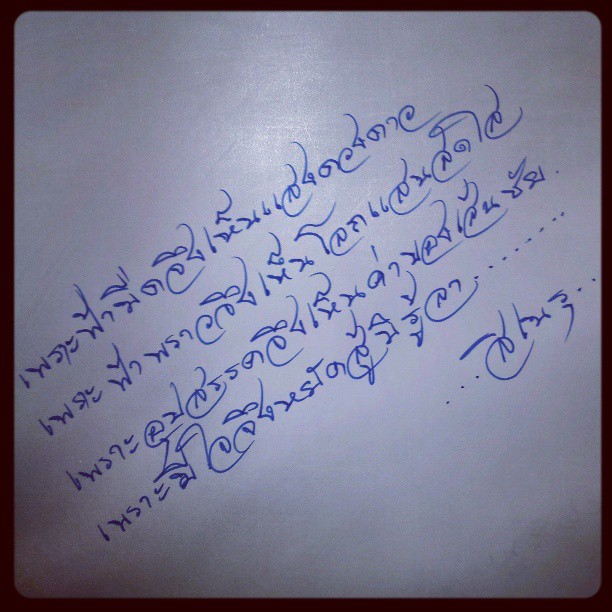 เพราะฟ้ามืดจึงเห็นแสงดวงดาว
เพราะฟ้าพราวจึงเห็นโลกแสนสดใส
เพราะอุปสรรคจึงเห็นค่าของเส้นชัย.
เพราะมีใจจึงหยัดสู้มิรู้ลา........
...สุเมรุ...